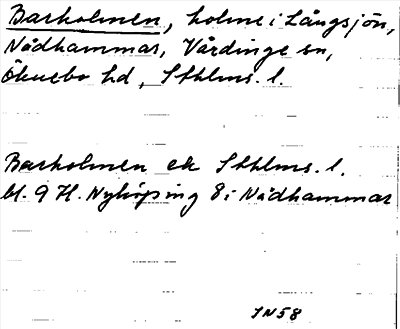 Barholmen, holme i Långsjön,
Nådhammar, Vårdinge sn,
Öknebo hd, Sthlms. l.
Barholmen ek Sthlms. l.
bl. 9 H. Nyköping 8 i Nådhammar
IN58